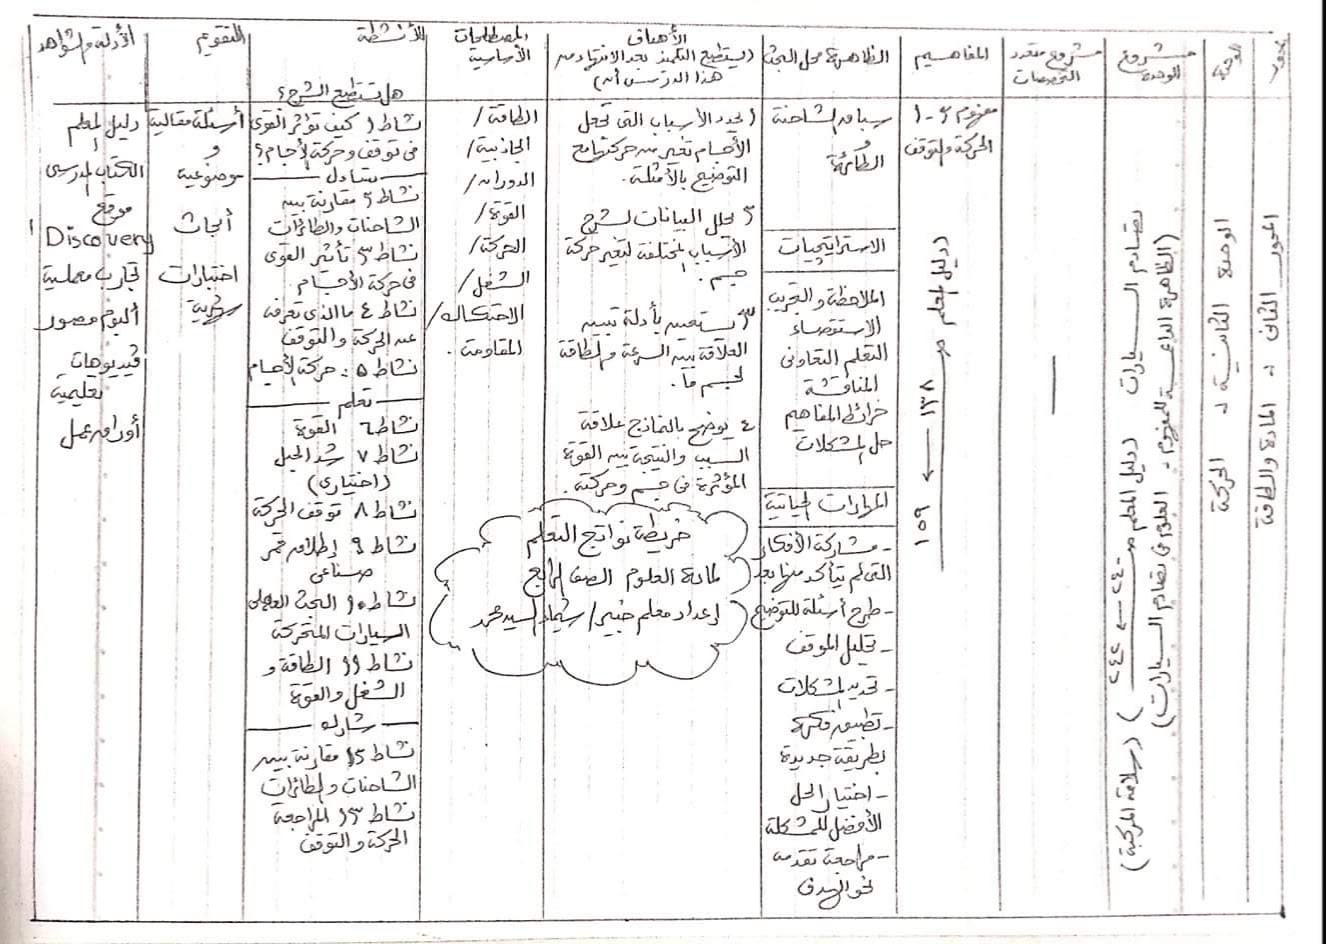 المحور
الوحدة
مشروع
الوحدة
مشروع متعدد
التخصصات
المفاهيم
الظاهرة محل البحث
الأهداف
(يستطيع التلميذ بعد الانتهاء من
هذا الدرس أن)
المصطلحات
الأساسية
الأنشطة
التقويم
الأدلة والشواهد
المحور الثاني :- المادة والطاقة
الوحدة الثانية :- الحركة
تصادم السيارات (دليل المعلم صـ ٢٤٠ ← ٢٤٢) (سلامة المركبة)
(الظاهرة الداعمة للمفهوم - العلوم في تصادم السيارات)
مفهوم ٢-١
الحركة والتوقف
(دليل المعلم صـ ١٣٨ ← ١٥٩
سباق الشاحنة
و
الطائرة
الاستراتيجيات
الملاحظة والتجريب
الاستقصاء
التعلم التعاوني
المناقشة
خرائط المفاهيم
حل المشكلات
المهارات الحياتية
- مشاركة الأفكار
التي لم يتأكد منها بعد
- طرح أسئلة للتوضيح
- تحليل الموقف
- تحديد المشكلات
- تطبيق فكرة
بطريقة جديدة
- اختيار الحل
الأفضل للمشكلة
- مراجعة تقدمه
نحو الهدف
١) يحدد الأسباب التي تجعل
الأجسام تغير من حركتها مع
التوضيح بالأمثلة.
٢ يحلل البيانات لشرح
الأسباب المختلفة لتغير حركة
جسم.
٣) يستعين بأدلة تبين
العلاقة بين السرعة والطاقة
لجسم ما.
٤ يوضح بالنماذج علاقة
السبب والنتيجة بين القوة
المؤثرة في جسم وحركته.
خريطة نواتج التعلم
لمادة العلوم الصف الرابع
إعداد معلم خبير/ شيماء السيد محمد
الطاقة/
الجاذبية/
الدوران/
القوة/
الحركة/
الشغل/
الاحتكاك/
المقاومة.
هل تستطيع الشرح؟
نشاط ١ كيف تؤثر القوى
في توقف وحركة الأجسام؟
تساءل
نشاط ٢ مقارنة بين
الشاحنات والطائرات
نشاط ٣ تأثير القوى
في حركة الأجسام
نشاط ٤ ما الذي تعرفه
عن الحركة والتوقف
نشاط ٥ . حركة الأجسام
تعلم
نشاط ٦ القوة
نشاط ٧ شد الحبل
(اختياري)
نشاط ٨ توقف الحركة
نشاط ٩ إطلاق قمر
صناعي
نشاط ١٠ البحث العملي
السيارات المتحركة
نشاط ١١ الطاقة و
الشغل والقوة
شارك
نشاط ١٢ مقارنة بين
الشاحنات والطائرات
نشاط ١٣ المراجعة
الحركة والتوقف
أسئلة مقالية
و
موضوعية
أبحاث
اختبارات
شهرية
دليل المعلم
الكتاب المدرسي
موقع
Discovery
تجارب معملية
ألبوم مصور
فيديوهات
تعليمية
أوراق عمل